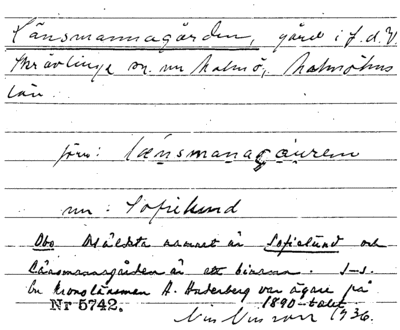 Länsmannagården, gård i f.d. V.
Skrävlinge sn. nu Malmö, Malmöhus
län.
förr: länsmanagåuren
nu: Sofielund
Obs Det äldsta namnet är Sofielund och
Länsmannagården är ett binamn. J-s.
En kronolänsman A. Anderberg var ägare på
Nr 5742. 1890-talet.
1936.